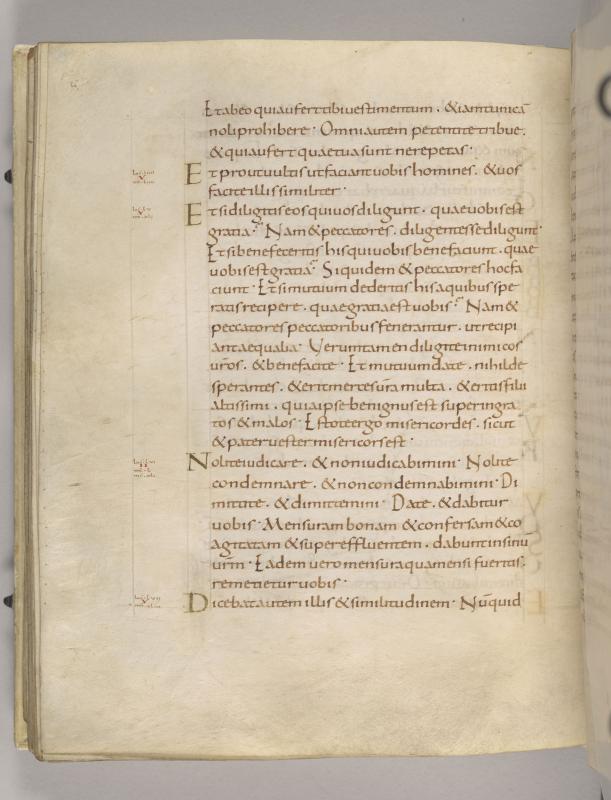 Et ab eo qui aufert tibi vestimentum . & iam tunicā
noli prohibere · Omni autem petenti te tribue .
& qui aufert quae tua sunt ne repetas ·
Et prout vultis ut faciant vobis homines . & vos
facite illis similiter ·
Et si diligitis eos qui vos diligunt . quae vobis est
gratia · Nam & peccatores . diligentes se diligunt ·
Et si benefeceritis his qui vobis benefaciunt . quae
vobis est gratia · Siquidem & peccatores hoc fa
ciunt · Et si mutuum dederitis his a quibus spe
ratis recipere . quae gratia est vobis · Nam &
peccatores peccatoribus fenerantur . ut recipi
ant aequalia · Verumtamen diligite inimicos
vr̄os . & benefacite · Et mutuum date . nihil de
sperantes . & erit merces vr̄a multa . & eritis filii
altissimi . quia ipse benignus est super ingra
tos & malos · Estote ergo misericordes . sicut
& pater vester misericors est ·
Nolite iudicare . & non iudicabimini · Nolite
condemnare . & non condemnabimini · Di
mittite . & dimittemini · Date . & dabitur
vobis · Mensuram bonam & confersam & co
agitatam & supereffluentem . dabunt in sinū
vr̄m · Eadem vero mensura qua mensi fueritis .
remetietur vobis ·
Dicebat autem illis & similitudinem · Nūquid